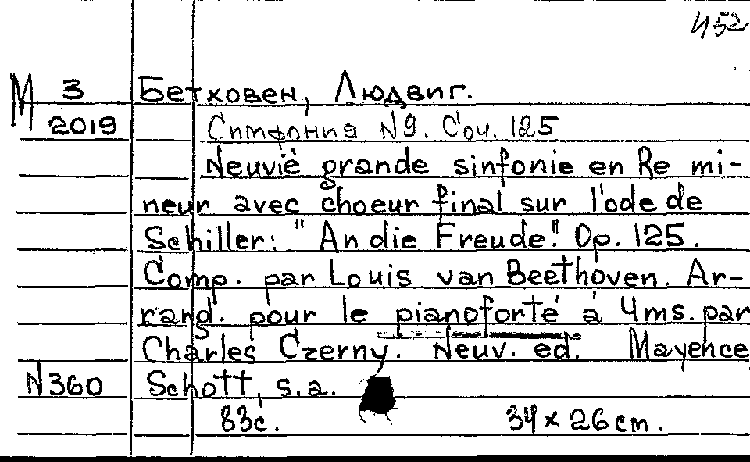 452
М 3 Бетховен, Людвиг.
2019 Симфония N9. Соч. 125
Neuviè grande sinfonie en Re mi-
neur avec choeur final sur l'ode de
Schiller: "An die Freude". Op. 125.
Comp. par Louis van Beethoven. Ar-
rang. pour le pianoforté à 4ms. par
Charles Czerny. Neuv. ed. Mayence,
N360 Schott, s.a.
83c. 34 x 26 cm.